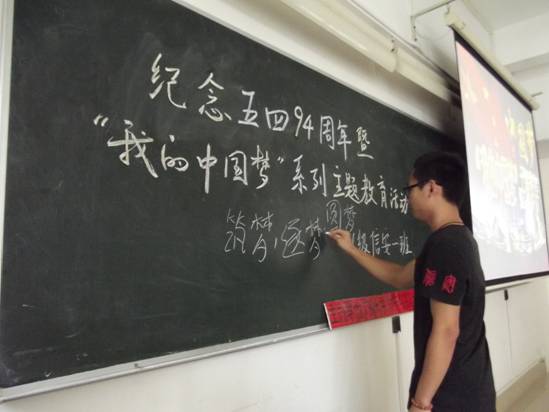 纪念五四94周年暨
“我的中国梦”系列主题教育活动
筑梦,逐梦
圆梦
级信安一班